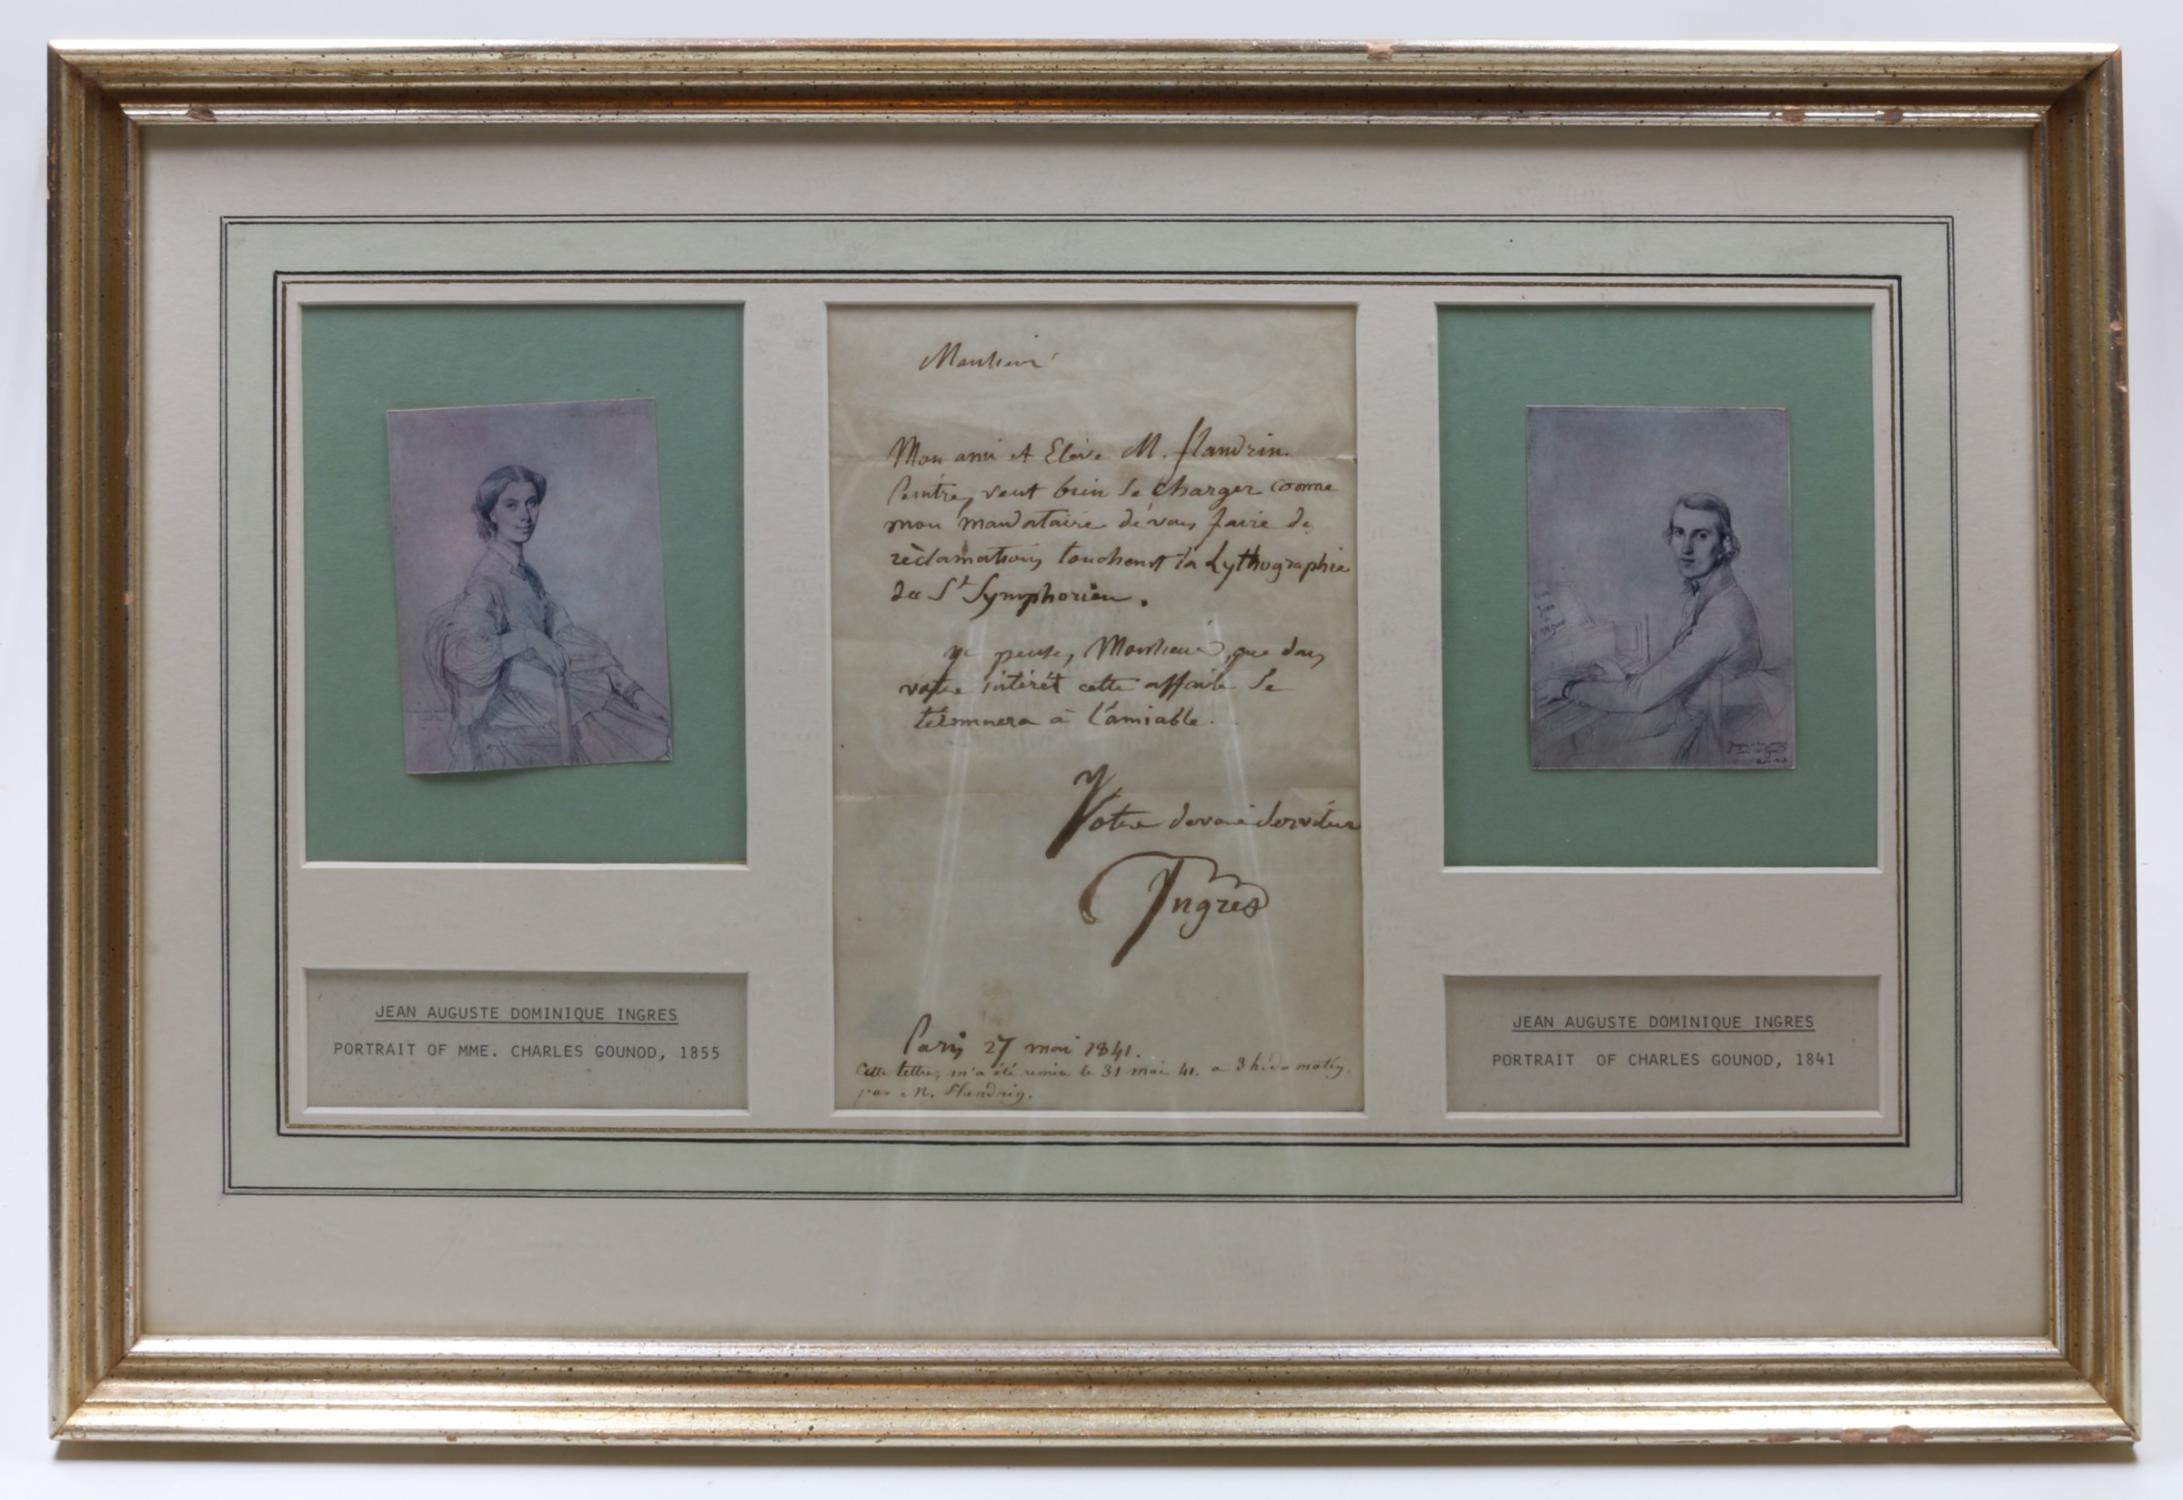 Monsieur
Mon ami et Elève M. flandrin
Peintre, veut bien se charger comme
mon mandataire de vous faire de
réclamations touchent la Lythographie
du St Symphorien.
je pense, Monsieur, que dans
votre intérêt cette affaire se
términera à l'amiable.
Votre dévoué serviteur
Ingres
Paris 27 mai 1841.
Cette lettre, m'a été remise le 31 mai 41. a 3 h. du matin
par M. flandrin.
JEAN AUGUSTE DOMINIQUE INGRES
PORTRAIT OF MME. CHARLES GOUNOD, 1855
JEAN AUGUSTE DOMINIQUE INGRES
PORTRAIT OF CHARLES GOUNOD, 1841